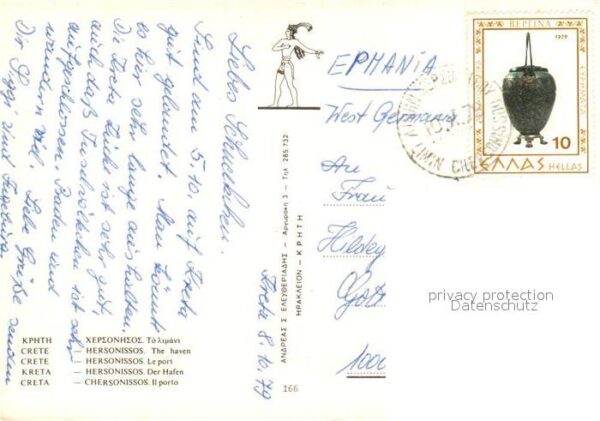 Kreta 8.10.79
Liebes Schneckchen.
Sind am 5.10. auf Kreta
gut gelandet. Man könnte
es hier sehr lange aushalten.
Die rote Liebe ist sehr gut,
auch daß Fundvölkchen ist sehr
aufgeschlossen. Baden und
wandern viel. Liebe Grüße senden
Dir Siggi und
ΚΡΗΤΗ — ΧΕΡΣΟΝΗΣΟΣ. Τὸ λιμάνι
CRETE — HERSONISSOS. The haven
CRETE — HERSONISSOS. Le port
KRETA — HERSONISSOS. Der Hafen
CRETA — CHERSONISSOS. Il porto
ΑΝΔΡΕΑΣ Σ. ΕΛΕΥΘΕΡΙΑΔΗΣ — Αργυράκη 3 — Τηλ. 285 732
ΗΡΑΚΛΕΙΟΝ - ΚΡΗΤΗ
166
ΕΡΜΑΝΙΑ
West Germania
An
Frau
Hildeg
Gott
1000
ΒΕΡΓΙΝΑ
1979
10
ΕΛΛΑΣ HELLAS
privacy protection
Datenschutz